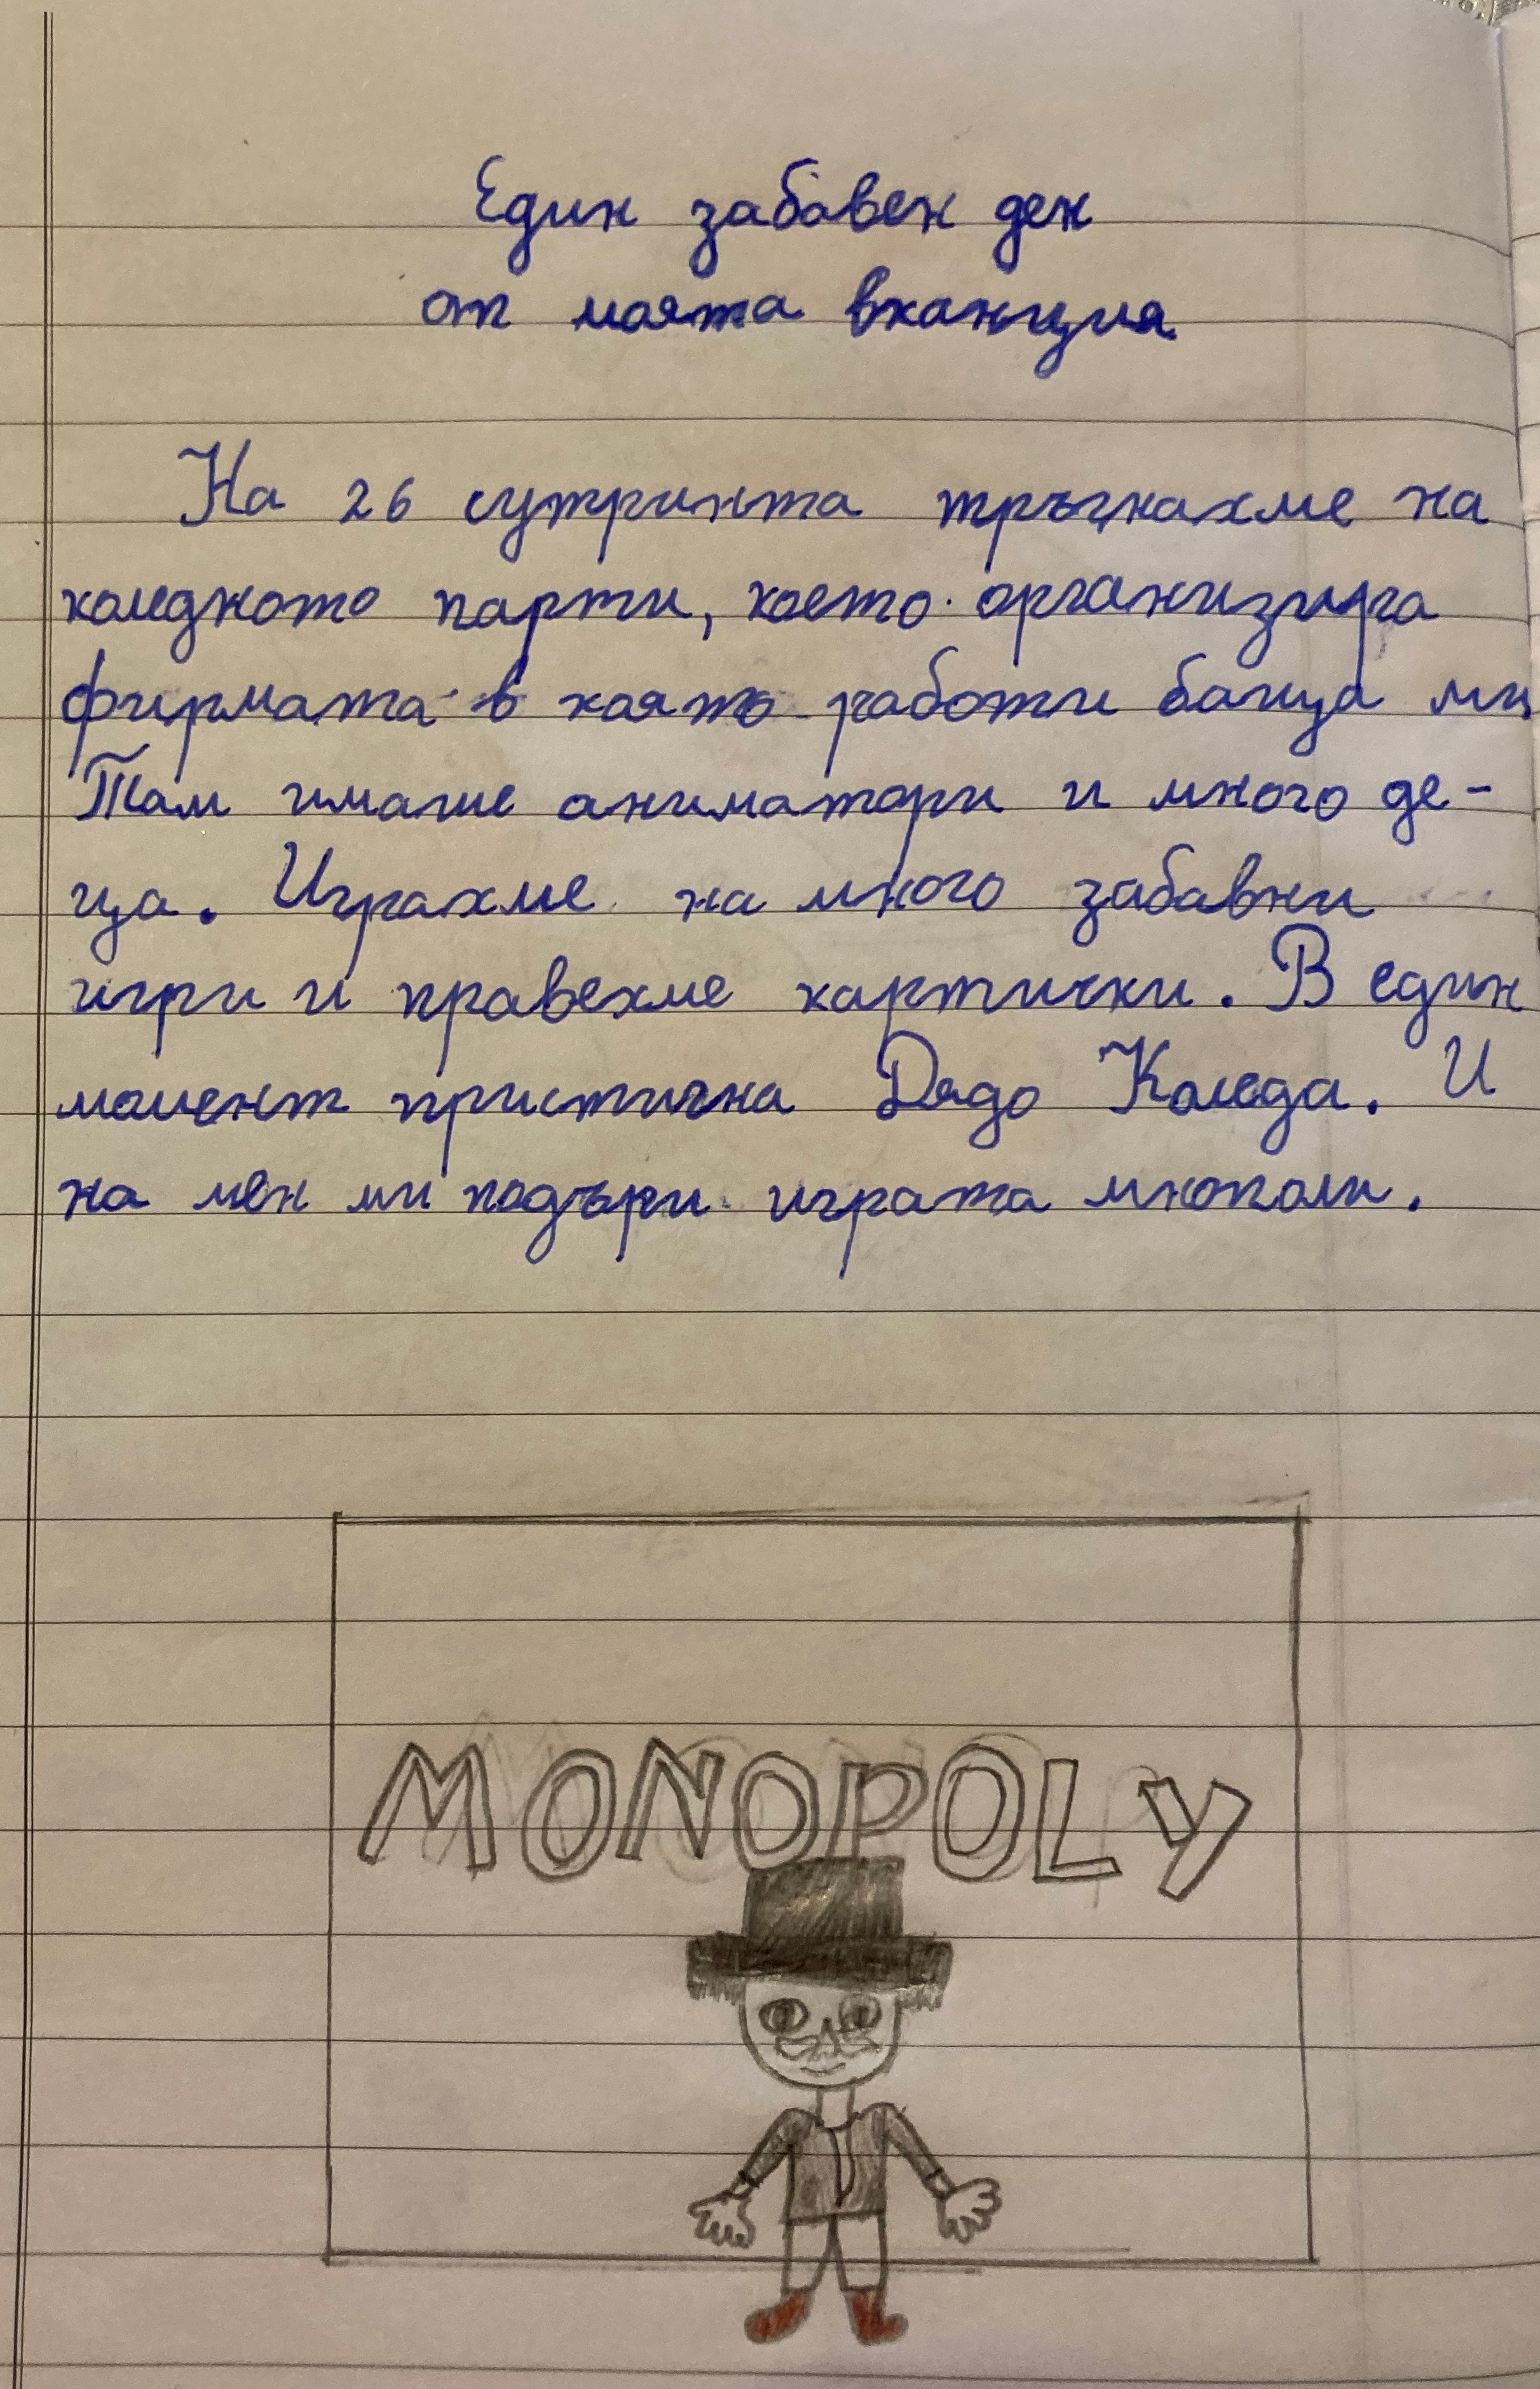 Един забавен ден
от моята вканция
На 26 сутринта тръгнахме на
коледното парти, което организира
фирмата в която работи баща ми
Там имаше аниматори и много де-
ца. Играхме на много забавни
игри и правехме картички. В един
момент пристигна Дядо Коледа. И
на мен ми подъри играта мнополи.
MONOPOLY